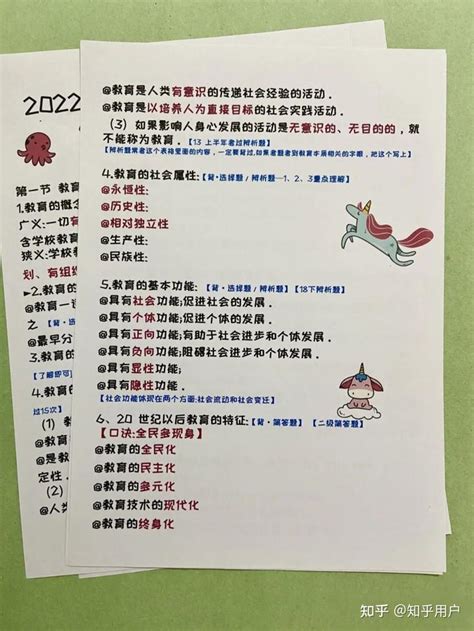 @教育是人类有意识的传递社会经验的活动．
@教育是以培养人为直接目标的社会实践活动．
（3）如果影响人身心发展的活动是无意识的、无目的的，就
不能称为教育．【13 上半年考过辨析题】
【辨析题常考这个表格里面的内容，一定要背过,如果考题考到教育本质相关的字眼，把这个写上】
4.教育的社会属性:【背·选择题/辨析题—1、2、3重点理解】
@永恒性:
@历史性:
@相对独立性
@生产性:
@民族性:
5.教育的基本功能:【背·选择题/辨析题】【18下辨析题】
@具有社会功能;促进社会的发展．
@具有个体功能;促进个体的发展．
@具有正向功能;有助于社会进步和个体发展．
@具有负向功能;阻碍社会进步和个体发展．
@具有显性功能;
@具有隐性功能．
【社会功能体现在两个方面:社会流动和社会变迁】
6、20 世纪以后教育的特征:【背·简答题】【二级简答题】
【口诀:全民多现身】
@教育的全民化
@教育的民主化
@教育的多元化
@教育技术的现代化
@教育的终身化
2022
第一节 教育
1.教育的概念
广义:一切有
含学校教育
狭义:学校教
划、有组织
►2.教育的
@教育一词
2.
@最早分
3.教育的
【了解即可】
4.教育的
过15次】
（1）
@教育
@是教
定性．
（2）
@人类
知乎 @知乎用户